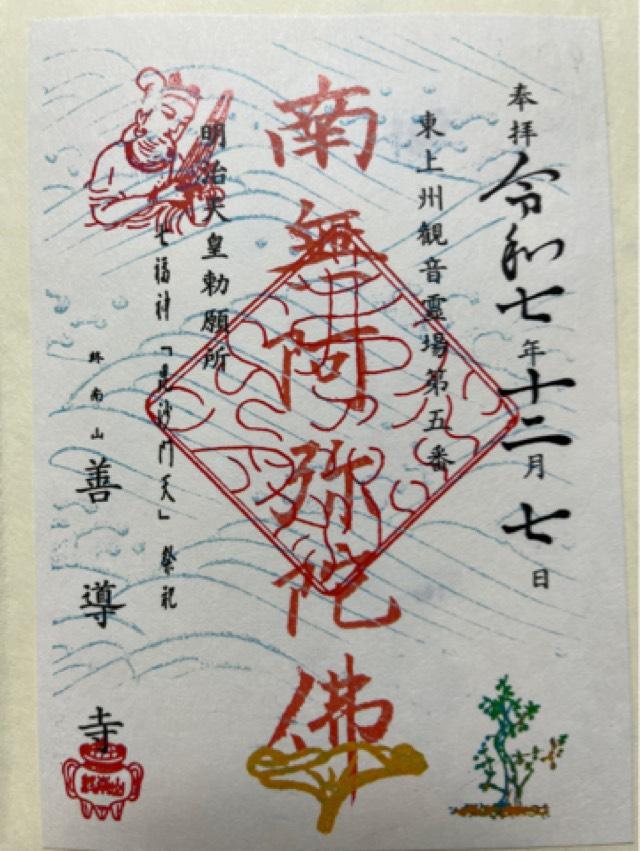 奉拝
令和七年十二月七日
東上州観音霊場第五番
南無阿弥陀佛
明治天皇勅願所
七福神「毘沙門天」祭祀
終南山
善導寺